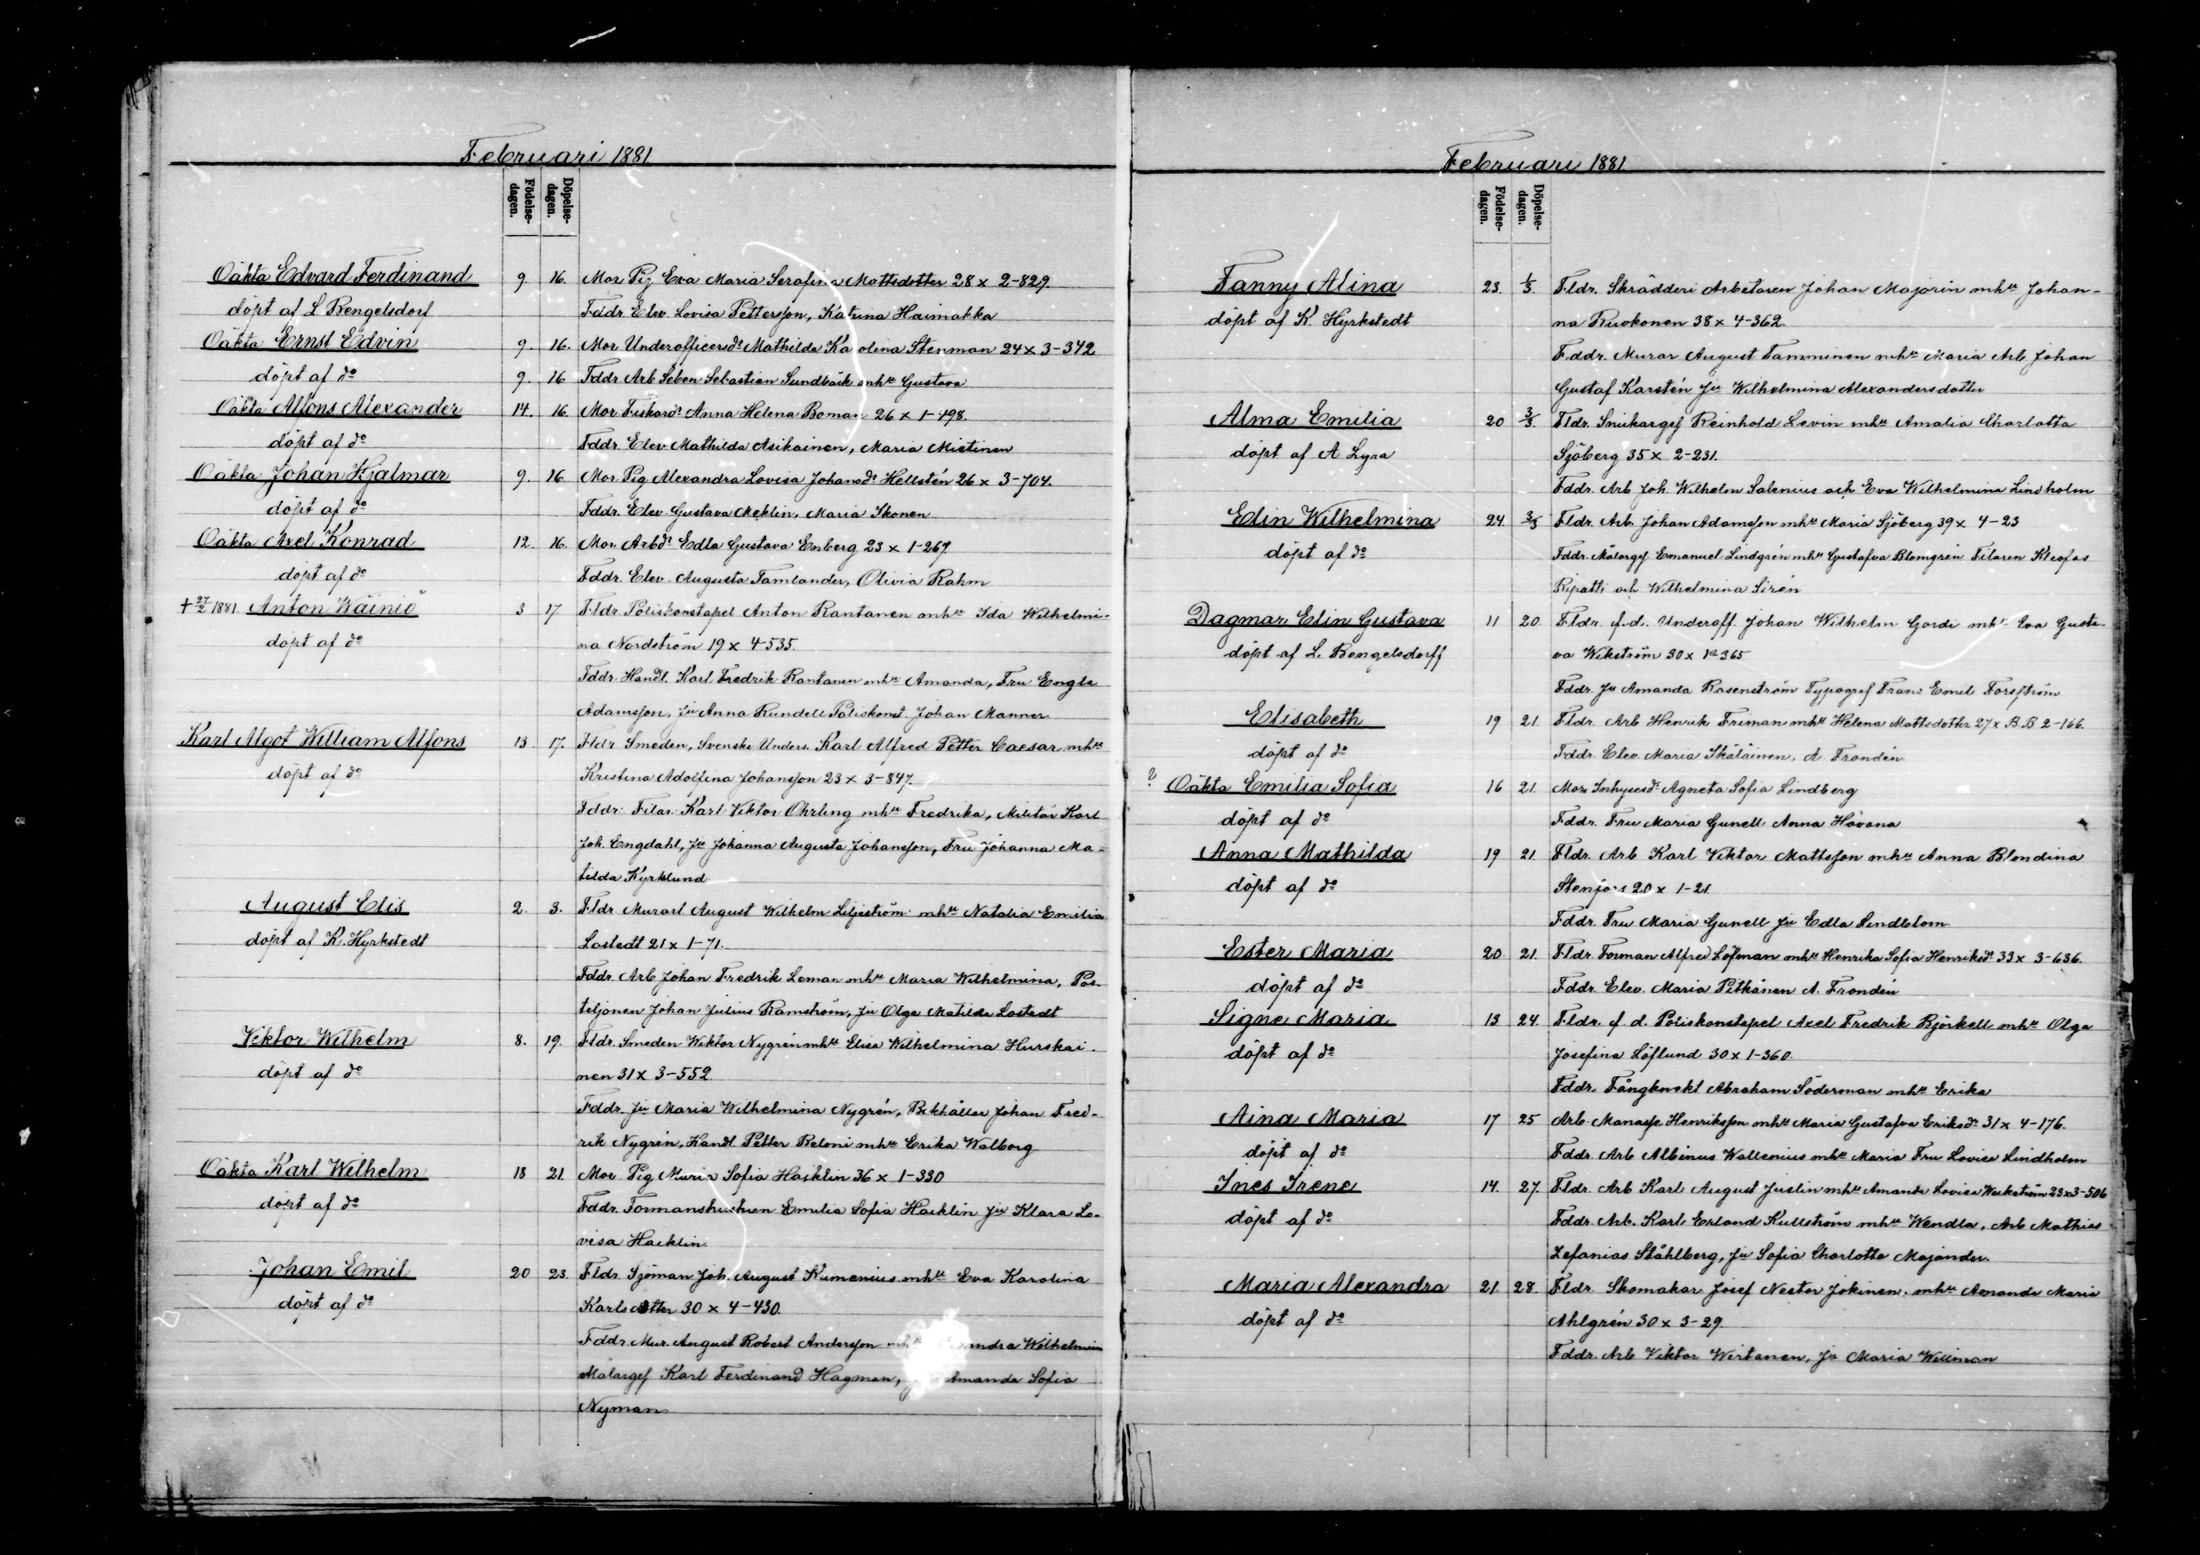 Februari 1881
Födelse-dagen. Döpelse-dagen.
Oäkta Edvard Ferdinand 9. 16. Mor Pig Eva Maria Serafina Mattsdotter 28 x 2-829.
döpt af L Bengelsdorf Fddr Elev. Lovisa Pettersson, Katrina Haimakka
Oäkta Ernst Edvin 9. 16. Mor Underofficersdr Mathilda Karolina Stenman 24 x 3-372
döpt af do 9. 16 Fddr Arb Seben Sebastian Sundbäck mhu Gustava
Oäkta Alfons Alexander 14. 16. Mor Fiskardr Anna Helena Boman 26 x 1-498.
döpt af do Fddr. Elev Mathilda Asikainen, Maria Mietinen
Oäkta Johan Hjalmar 9. 16 Mor Pig Alexandra Lovisa Johansdr Hellstén 26 x 3-704.
döpt af do Fddr. Elev. Gustava Meklin, Maria Ikonen
Oäkta Axel Konrad 12. 16. Mor. Arbdr Edla Gustava Enberg 23 x 1-267
döpt af do Fddr. Elev. Augusta Tamlander, Olivia Rahm
+ 27/2 1881. Anton Wäinö 3 17 Fldr Poliskonstapel Anton Rantanen mhu Ida Wilhelmi-
döpt af do na Nordström 19 x 4-535.
Fddr. Handl. Karl Fredrik Rantanen mhu Amanda, Fru Engla
Adamsson, Ju Anna Rundell Poliskonst. Johan Manner
Karl Algot William Alfons 13. 17. Fldr Smeden, Svenske Unders. Karl Alfred Petter Caesar mhu
döpt af do Kristina Adolfina Johansson 23 x 3-847.
Fddr: Filar. Karl Viktor Öhrling mhu Fredrika, Militär Karl
Joh. Engdahl, Ju Johanna Augusta Johansson, Fru Johanna Ma-
tilda Kyrklund
August Elis 2. 3. Fldr Murarl August Wilhelm Liljeström mhu Natalia Emilia
döpt af K. Hyrkstedt Lostedt 21 x 1-71.
Fddr. Arb Johan Fredrik Leman mhu Maria Wilhelmina, Pos-
tiljonen Johan Julius Ramström, Ju Olga Matilda Lostedt
Viktor Wilhelm 8. 19. Fldr. Smeden Wiktor Nygrén mhu Elisa Wilhelmina Hurskai-
döpt af do nen 31 x 3-552
Fddr. Ju Maria Wilhelmina Nygrén, Bokhåller Johan Fred-
rik Nygrén, Handl. Petter Reloni mhu Erika Walborg
Oäkta Karl Wilhelm 18 21. Mor Pig Maria Sofia Hacklin 36 x 1-330
döpt af do Fddr. Formanshustrun Emilia Sofia Hacklin Ju Klara Lo-
visa Hacklin.
Johan Emil 20 23. Fldr. Sjöman Joh. August Kumenius mhu Eva Karolina
döpt af do Karlsdotter 30 x 4-430.
Fddr. Mur. August Robert Andersson Wilhelmina
Målargef Karl Ferdinand Hagman, Amanda Sofia
Nyman
Februari 1881
Födelse-dagen. Döpelse-dagen.
Fanny Alina 23. 1/3. Fldr. Skrädderi Arbetaren Johan Majorin mhu Johan-
döpt af K. Hyrkstedt na Ruokonen 38 x 4-362.
Fddr. Murar August Tamminen mhu Maria Arb. Johan
Gustaf Karstén Ju Wilhelmina Alexandersdotter
Alma Emilia 20 3/3. Fldr. Snickargef Reinhold Levin mhu Amalia Charlotta
döpt af A Lyra Sjöberg 35 x 2-231.
Fddr. Arb Joh. Wilhelm Salenius och Eva Wilhelmina Lindholm
Elin Wilhelmina 24. 3/3 Fldr. Arb. Johan Adamsson mhu Maria Sjöberg 39 x 4-23
döpt af do Fddr. Målargef Emanuel Lindgrén mhu Gustafva Blomgrén Filaren Kleofas
Ripatti och Wilhelmina Sirén
Dagmar Elin Gustava 11 20. Fldr. f.d. Underoff. Johan Wilhelm Gardi mhu Eva Gusta-
döpt af L. Bengelsdorff va Wikström 30 x 1a 365
Fddr. Ju Amanda Rosenström Typograf Frans Emil Forsström
Elisabeth 19 21. Fldr. Arb Henrik Friman mhu Helena Mattsdotter 27 x B.B 2-166.
döpt af do Fddr. Elev. Maria Ikäläinen, A Frondén.
? Oäkta Emilia Sofia 16 21. Mor. Inhysesdr Agneta Sofia Lindberg
döpt af do Fddr. Fru Maria Gunell Anna Hävana
Anna Mathilda 19 21. Fldr. Arb Karl Viktor Mattsson mhu Anna Blondina
döpt af do Stenfors 20 x 1-21
Fddr. Fru Maria Gunell Ju Edla Lindblom
Ester Maria 20. 21. Fldr. Forman Alfred Löfman mhu Henrika Sofia Henriksdr 33 x 3-636.
döpt af do Fddr. Elev. Maria Pitkänen A. Frondén
Signe Maria 13 24. Fldr. f. d. Poliskonstapel Axel Fredrik Björkell mhu Olga
döpt af do Josefina Löflund 30 x 1-360.
Fddr. Fångknekt Abraham Söderman mhu Erika
Aina Maria 17 25 Arb. Manasse Henriksson mhu Maria Gustafva Eriksdr 31 x 4-176.
döpt af do Fddr. Arb Albinus Wallenius mhu Maria Fru Lovisa Lindholm
Ines Irene 14. 27. Fldr. Arb Karl August Juslin mhu Amanda Lovisa Weckström 23 x 3-506
döpt af do Fddr. Arb. Karl Erland Kullström mhu Wendla, Arb Mathias
Zefanias Ståhlberg, Ju Sofia Charlotta Majander.
Maria Alexandra 21. 28. Fldr. Skomakar Josef Nestor Jokinen. mhu Amanda Maria
döpt af do Ahlgrén 30 x 3-29.
Fddr. Arb Viktor Wirtanen, Ju Maria Willman